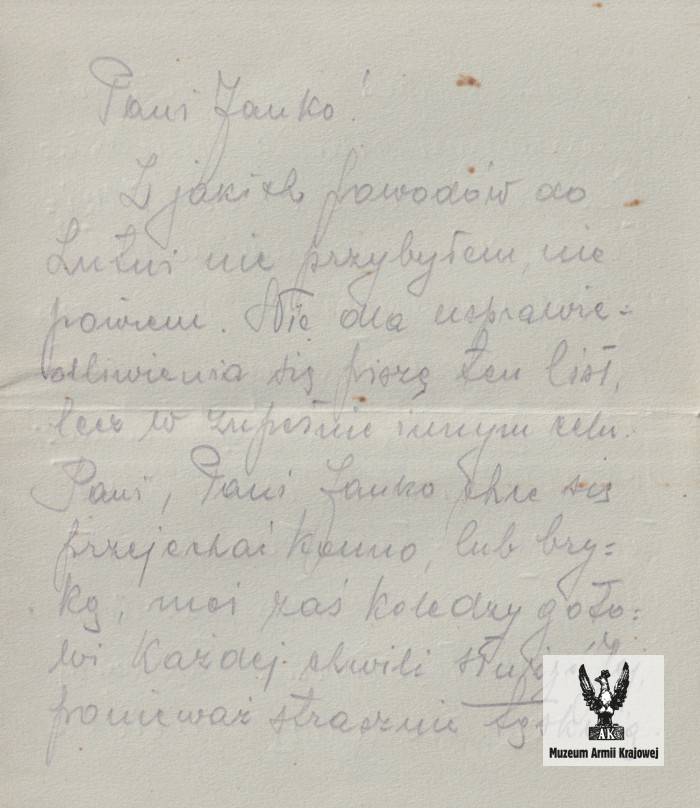 Pani Janko!
Z jakich powodów do
Lutni nie przybyłem, nie
powiem. Nie dla usprawie=
dliwienia się piszę ten list,
lecz w zupełnie innym celu.
Pani, Pani Janko chce się
przejechać konno, lub bry=
ką, moi zaś koledzy goto=
wi każdej chwili
ponieważ strasznie
AK
Muzeum Armii Krajowej